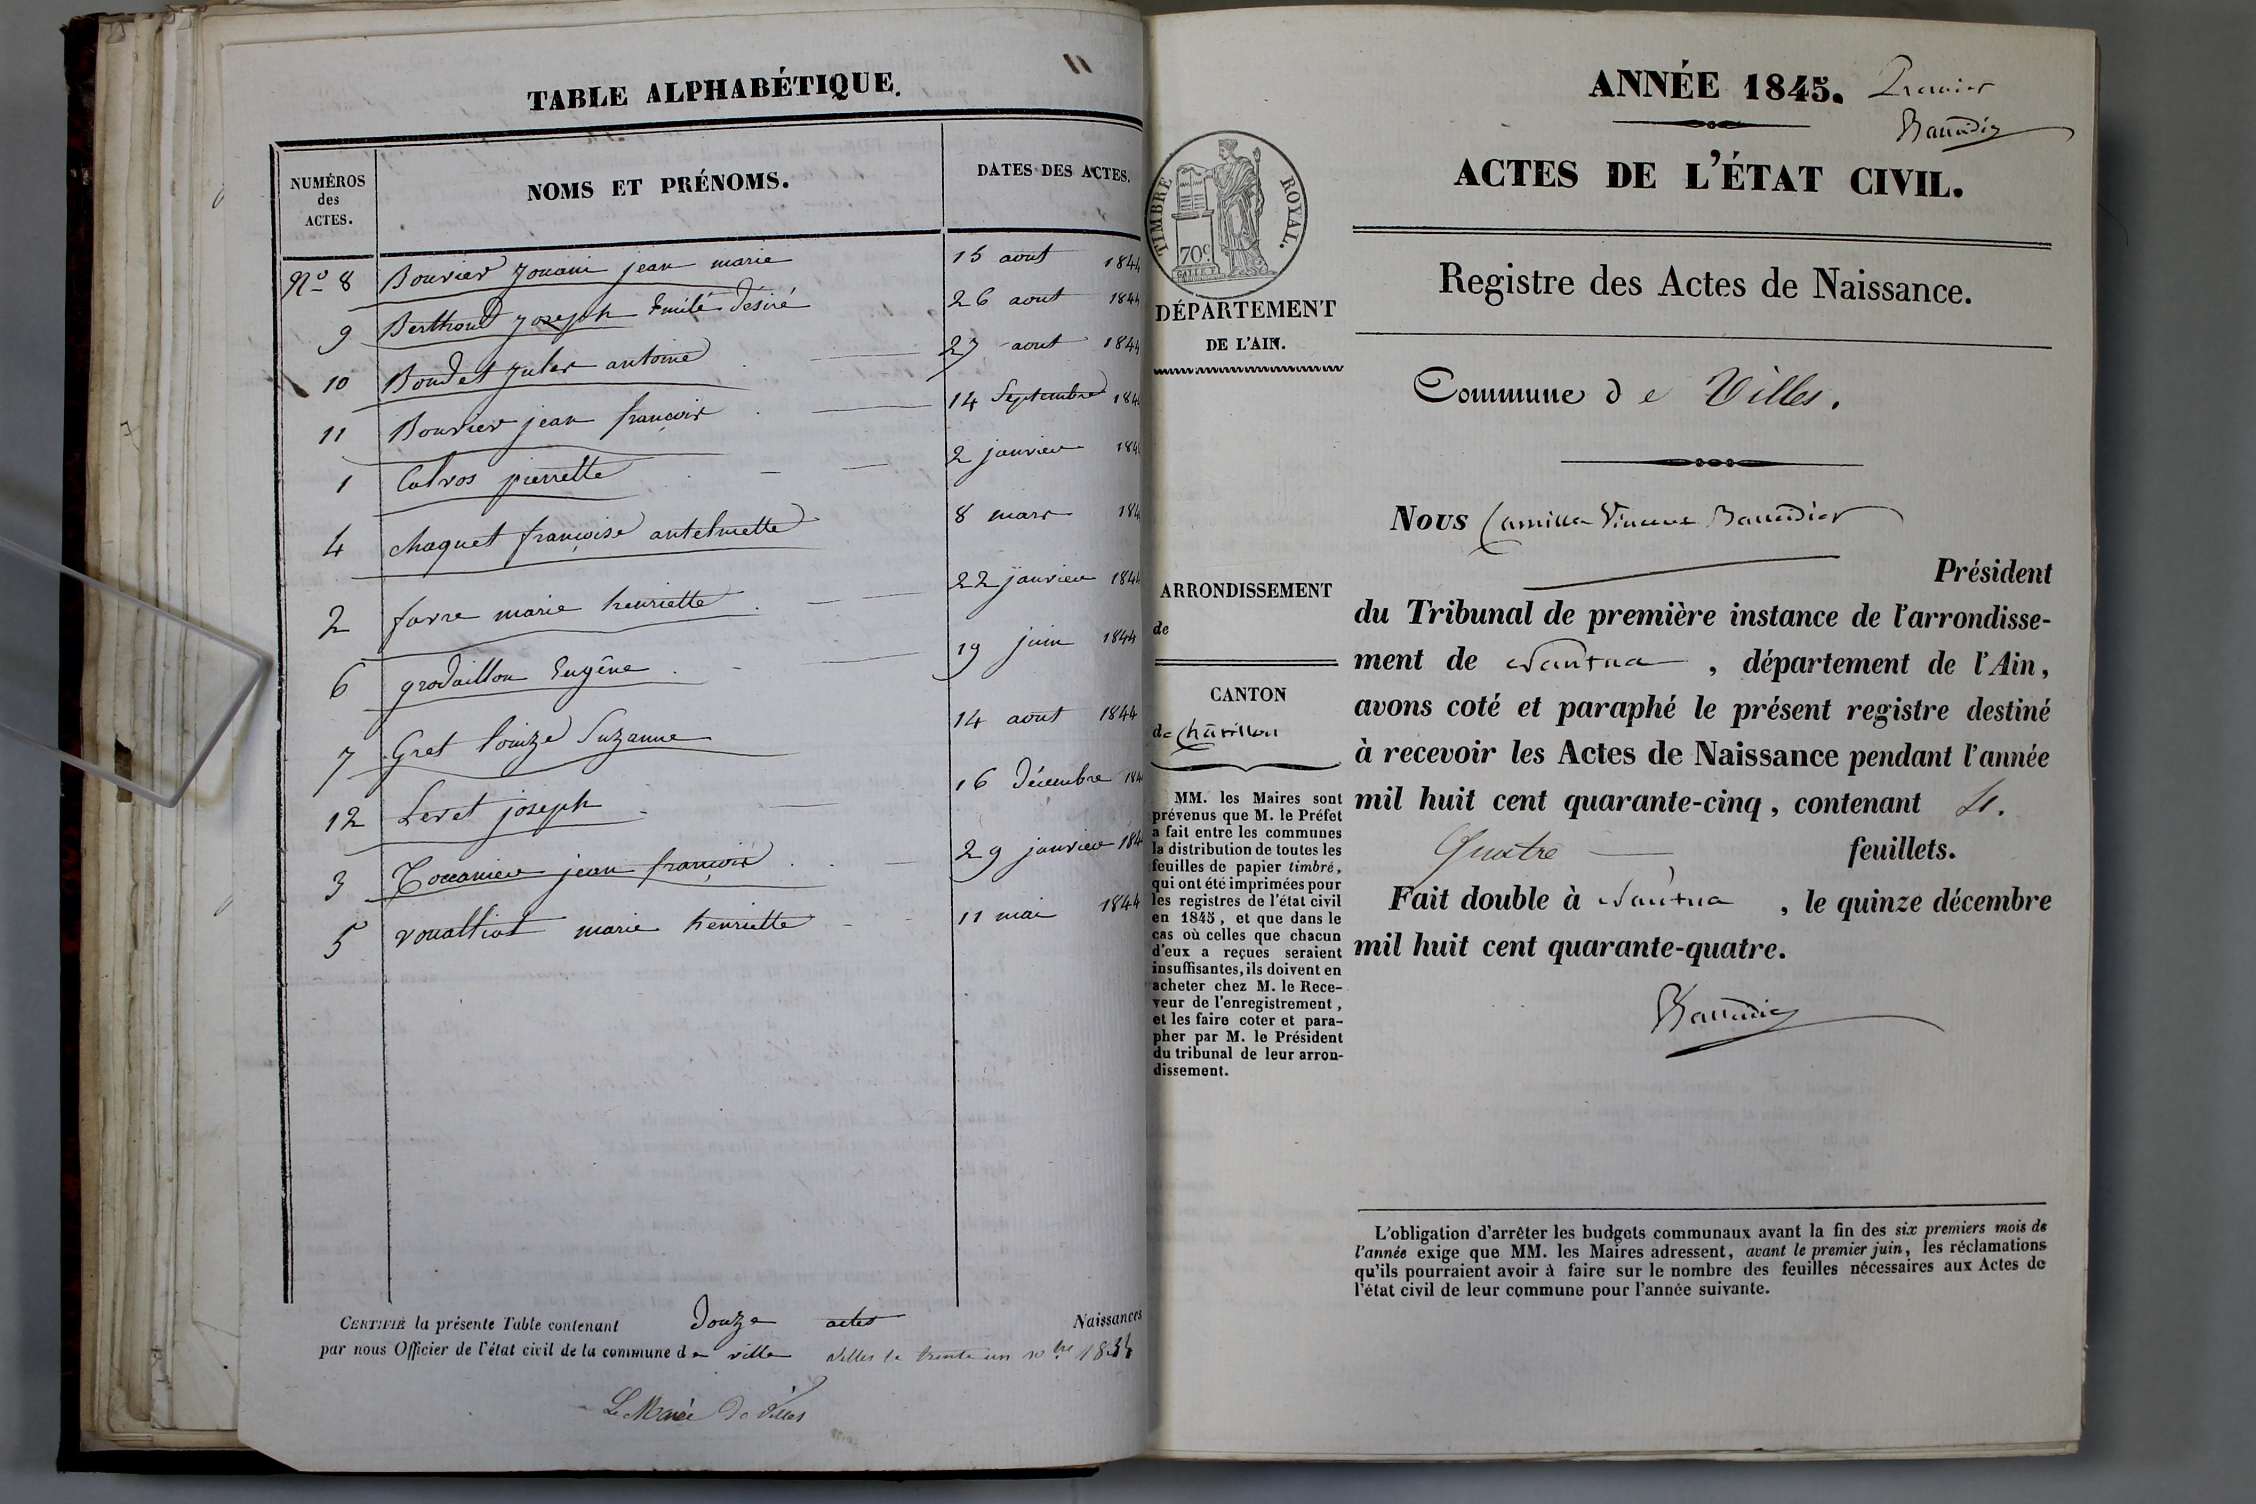 TABLE ALPHABÉTIQUE.
NUMÉROS des ACTES. NOMS ET PRÉNOMS. DATES DES ACTES.
No 8 Bouvier jean marie 15 aout 1844
9 Berthoud joseph Emile désiré 26 aout 1844
10 Boudet jules antoine 27 aout 1844
11 Bouvier jean françois 14 Septembre 184
1 Calvos pierrette 2 janvier 184
4 chaquet françoise antelmette 8 mars 184
2 favre marie henriette 22 janvier 1844
6 grodaillon Eugêne 19 juin 1844
7 Gret louize Suzanne 14 aout 1844
12 Levet joseph 16 décembre 184
3 jean françois 29 janvier 184
5 marie henriette 11 mai 1844
CERTIFIÉ la présente Table contenant douze actes Naissances
par nous Officier de l'état civil de la commune de ville villes le trente un 10bre
Le Maire de Villes
ANNÉE 1845. Premier
Baudier
ACTES DE L'ÉTAT CIVIL.
TIMBRE ROYAL.
70c
Registre des Actes de Naissance.
DÉPARTEMENT
DE L'AIN.
Commune de Villes.
Nous Camille Vincent Baudier
Président
ARRONDISSEMENT
de
CANTON
de Châtillon
du Tribunal de première instance de l'arrondisse-
ment de Nantua, département de l'Ain,
avons coté et paraphé le présent registre destiné
à recevoir les Actes de Naissance pendant l'année
mil huit cent quarante-cinq, contenant 4.
Quatre feuillets.
Fait double à Nantua, le quinze décembre
mil huit cent quarante-quatre.
Baudier
MM. les Maires sont
prévenus que M. le Préfet
a fait entre les communes
la distribution de toutes les
feuilles de papier timbré,
qui ont été imprimées pour
les registres de l'état civil
en 1845, et que dans le
cas où celles que chacun
d'eux a reçues seraient
insuffisantes, ils doivent en
acheter chez M. le Rece-
veur de l'enregistrement,
et les faire coter et para-
pher par M. le Président
du tribunal de leur arron-
dissement.
L'obligation d'arrêter les budgets communaux avant la fin des six premiers mois de
l'année exige que MM. les Maires adressent, avant le premier juin, les réclamations
qu'ils pourraient avoir à faire sur le nombre des feuilles nécessaires aux Actes de
l'état civil de leur commune pour l'année suivante.